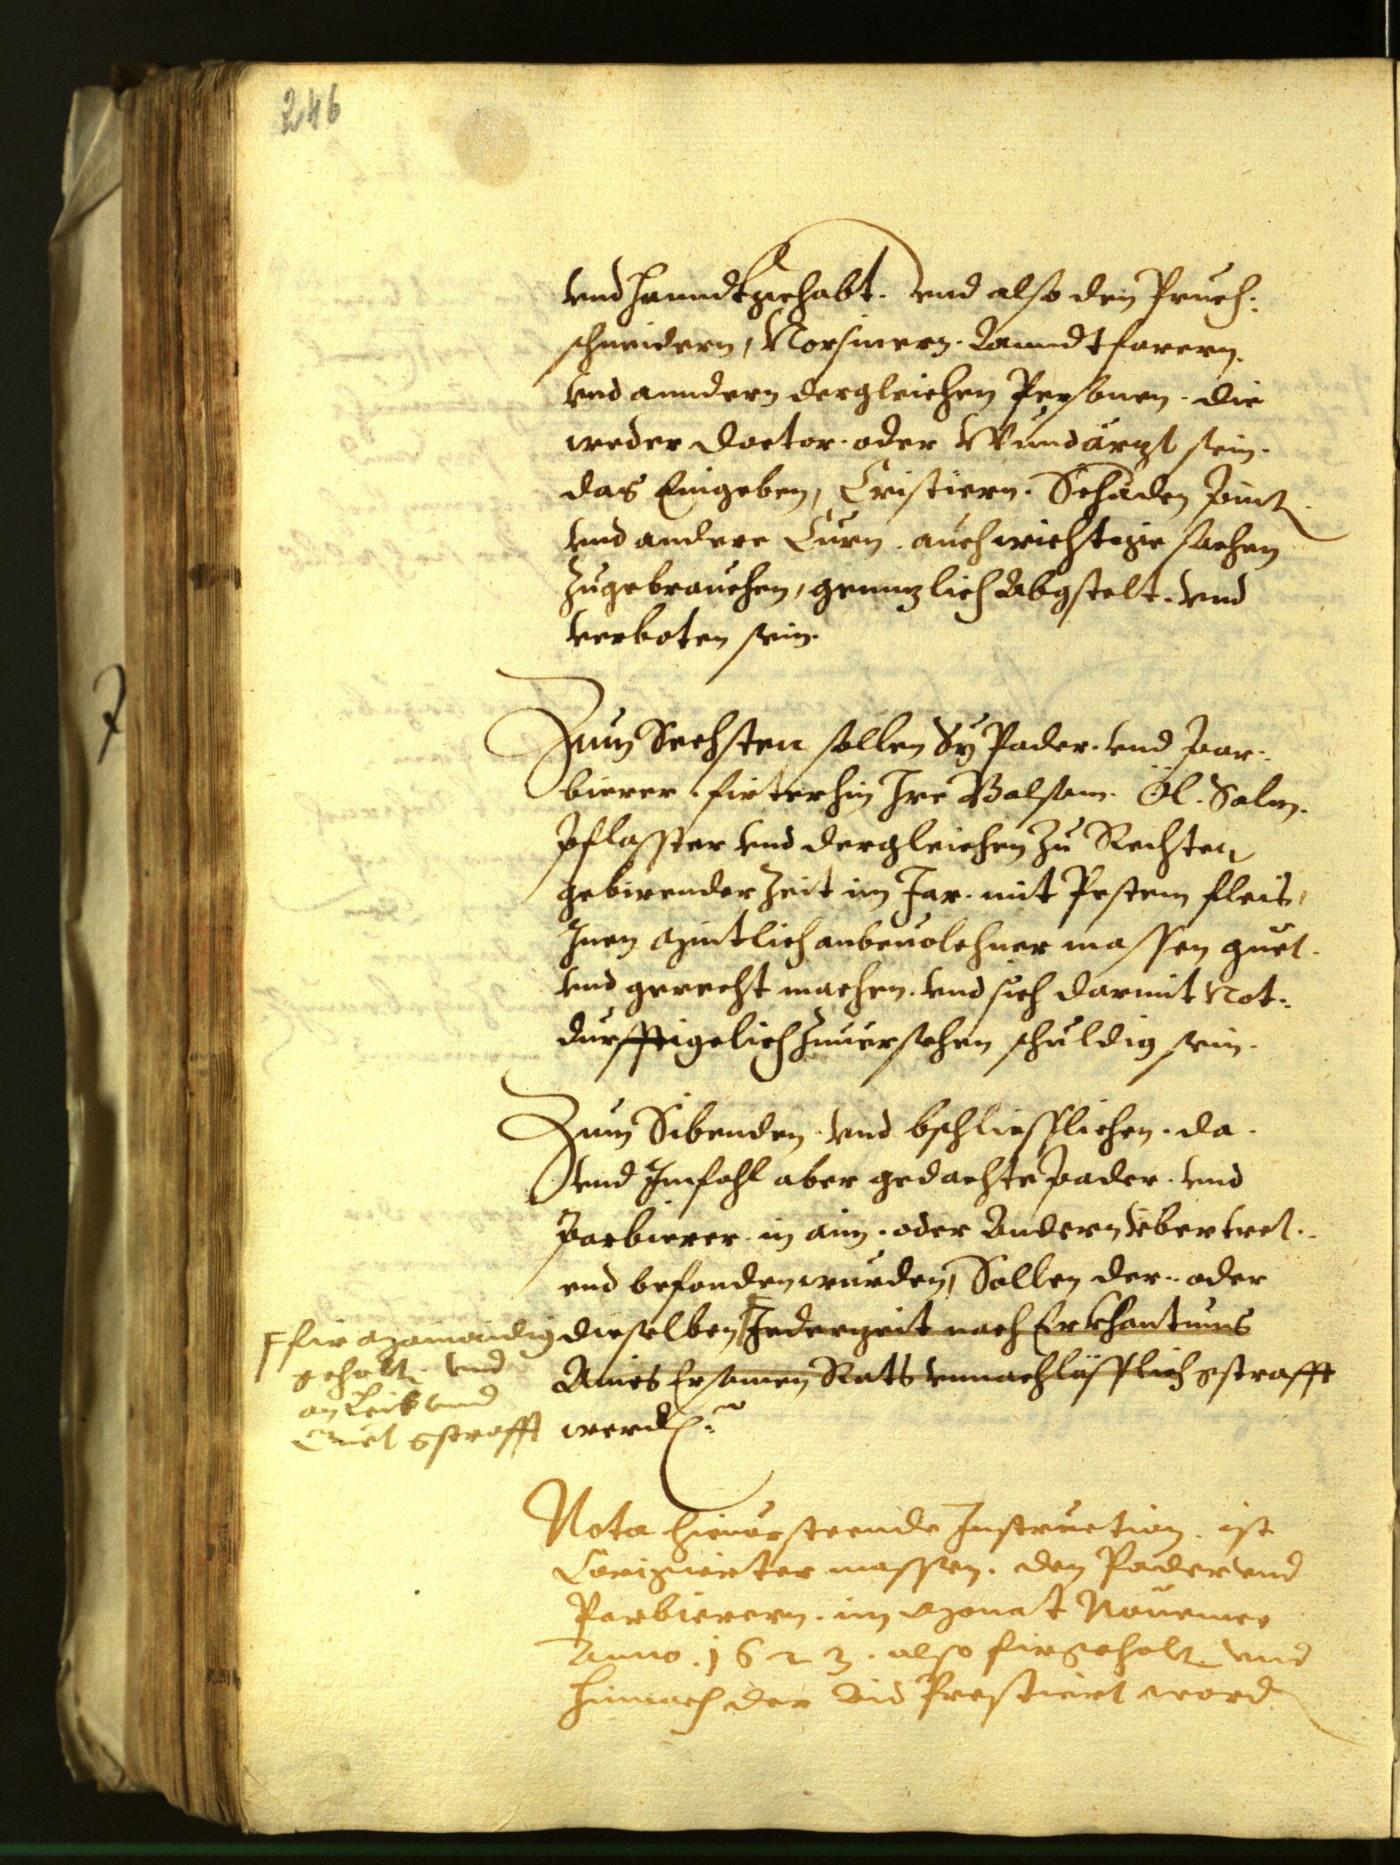 246
vnd Hanndtgehabt. vnd also den Pruch:
schneidern, Norsinern. Lanndtfarern.
vnd anndern dergleichen Personen. die
weder Doctor. oder Wundärzt sein.
das Eingeben, Cristiern. Schäden
vnd andere Curn. auch wichtige sachen
zugebrauchen, genntzlich Abgstelt. vnd
verboten sein.
Zum Sechsten sollen Sy Pader. vnd Par:
bierer. firterhin Ire Balsam. Öl. Salm.
Pflasster vnd dergleichen zu Rechten
gebirender Zeit im Jar. mit Pestem fleis,
Inen anbeuolchner massen guet.
vnd gerecht machen. vnd sich darmit Not:
durfftigelich zuuersehen schuldig sein.
Zum Sibenden. vnd bschliesslichen. da.
vnd Imfahl aber gedachte Pader. vnd
Parbierer. in ain. oder Andern vbertret.
end befonden wurden, Sollen der. oder
dieselben Jederzeit nach Erkhantnus
Aines Ersamen Rats vnnachlässlich gstrafft
werden.
fir
gehalt. vnd
an Leib vnd
Guet gstrafft
Nota hieuorsteende Instruction. ist
Corigierter massen. den Pader vnd
Parbierern. im Monat Nouember
Anno. 1623. also firgehalt. vnd
hinnach der Aid Prestiert word